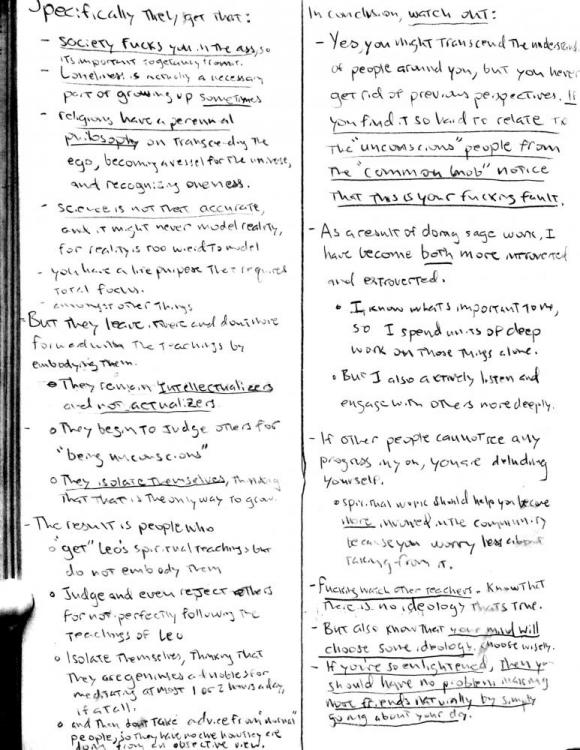 Specifically they get that:
- Society fucks you in the ass, so
it's important to get away from it.
- Loneliness is actually a necessary
part of growing up sometimes
- religions have a perennial
philosophy on transcending the
ego, becoming a vessel for the universe,
and recognizing oneness.
- science is not that accurate,
and it might never model reality,
for reality is too weird to model
- you have a life purpose that requires
total focus.
- amongst other things
- But they leave it there and don't move
forward with the teachings by
embodying them.
• They remain Intellectualizers
and not actualizers
• They begin to Judge others for
"being unconscious"
• They isolate themselves, thinking
that that is the only way to grow.
- The result is people who
• "get" Leo's spiritual teachings but
do not embody them
• Judge and even reject others
for not perfectly following the
teachings of Leo
• Isolate themselves, thinking that
they are geniuses and nobles for
meditating at most 1 or 2 hours a day,
if at all.
• and then don't take advice from "normal"
people, so they have no clue how they are
doing from an objective view.
In conclusion, watch out:
- Yes, you might transcend the understand
of people around you, but you never
get rid of previous perspectives. If
you find it so hard to relate to
the "unconscious" people from
the "common mob" notice
that this is your fucking fault.
- As a result of doing sage work, I
have become both more introverted
and extroverted.
• I know what's important to me,
so I spend units of deep
work on those things alone.
• But I also actively listen and
engage with others more deeply.
- If other people cannot see any
progress in you, you are deluding
yourself.
• spiritual work should help you become
more involved in the community
because you worry less about
taking from it.
- Fucking watch other teachers. Know that
there is no ideology that's true.
- But also know that your mind will
choose some ideology. choose wisely.
- If you're so enlightened, then you
should have no problem making
more friends naturally by simply
going about your day.